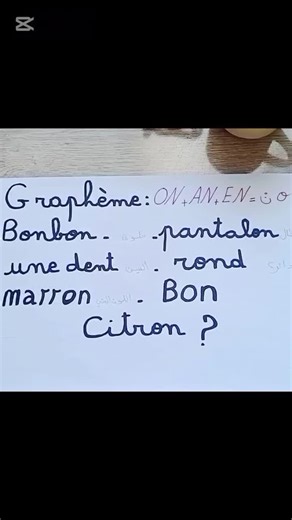 Graphème: ON+AN+EN=ن o
Bonbon - - pantalon
une dent . rond
marron . Bon
Citron ?